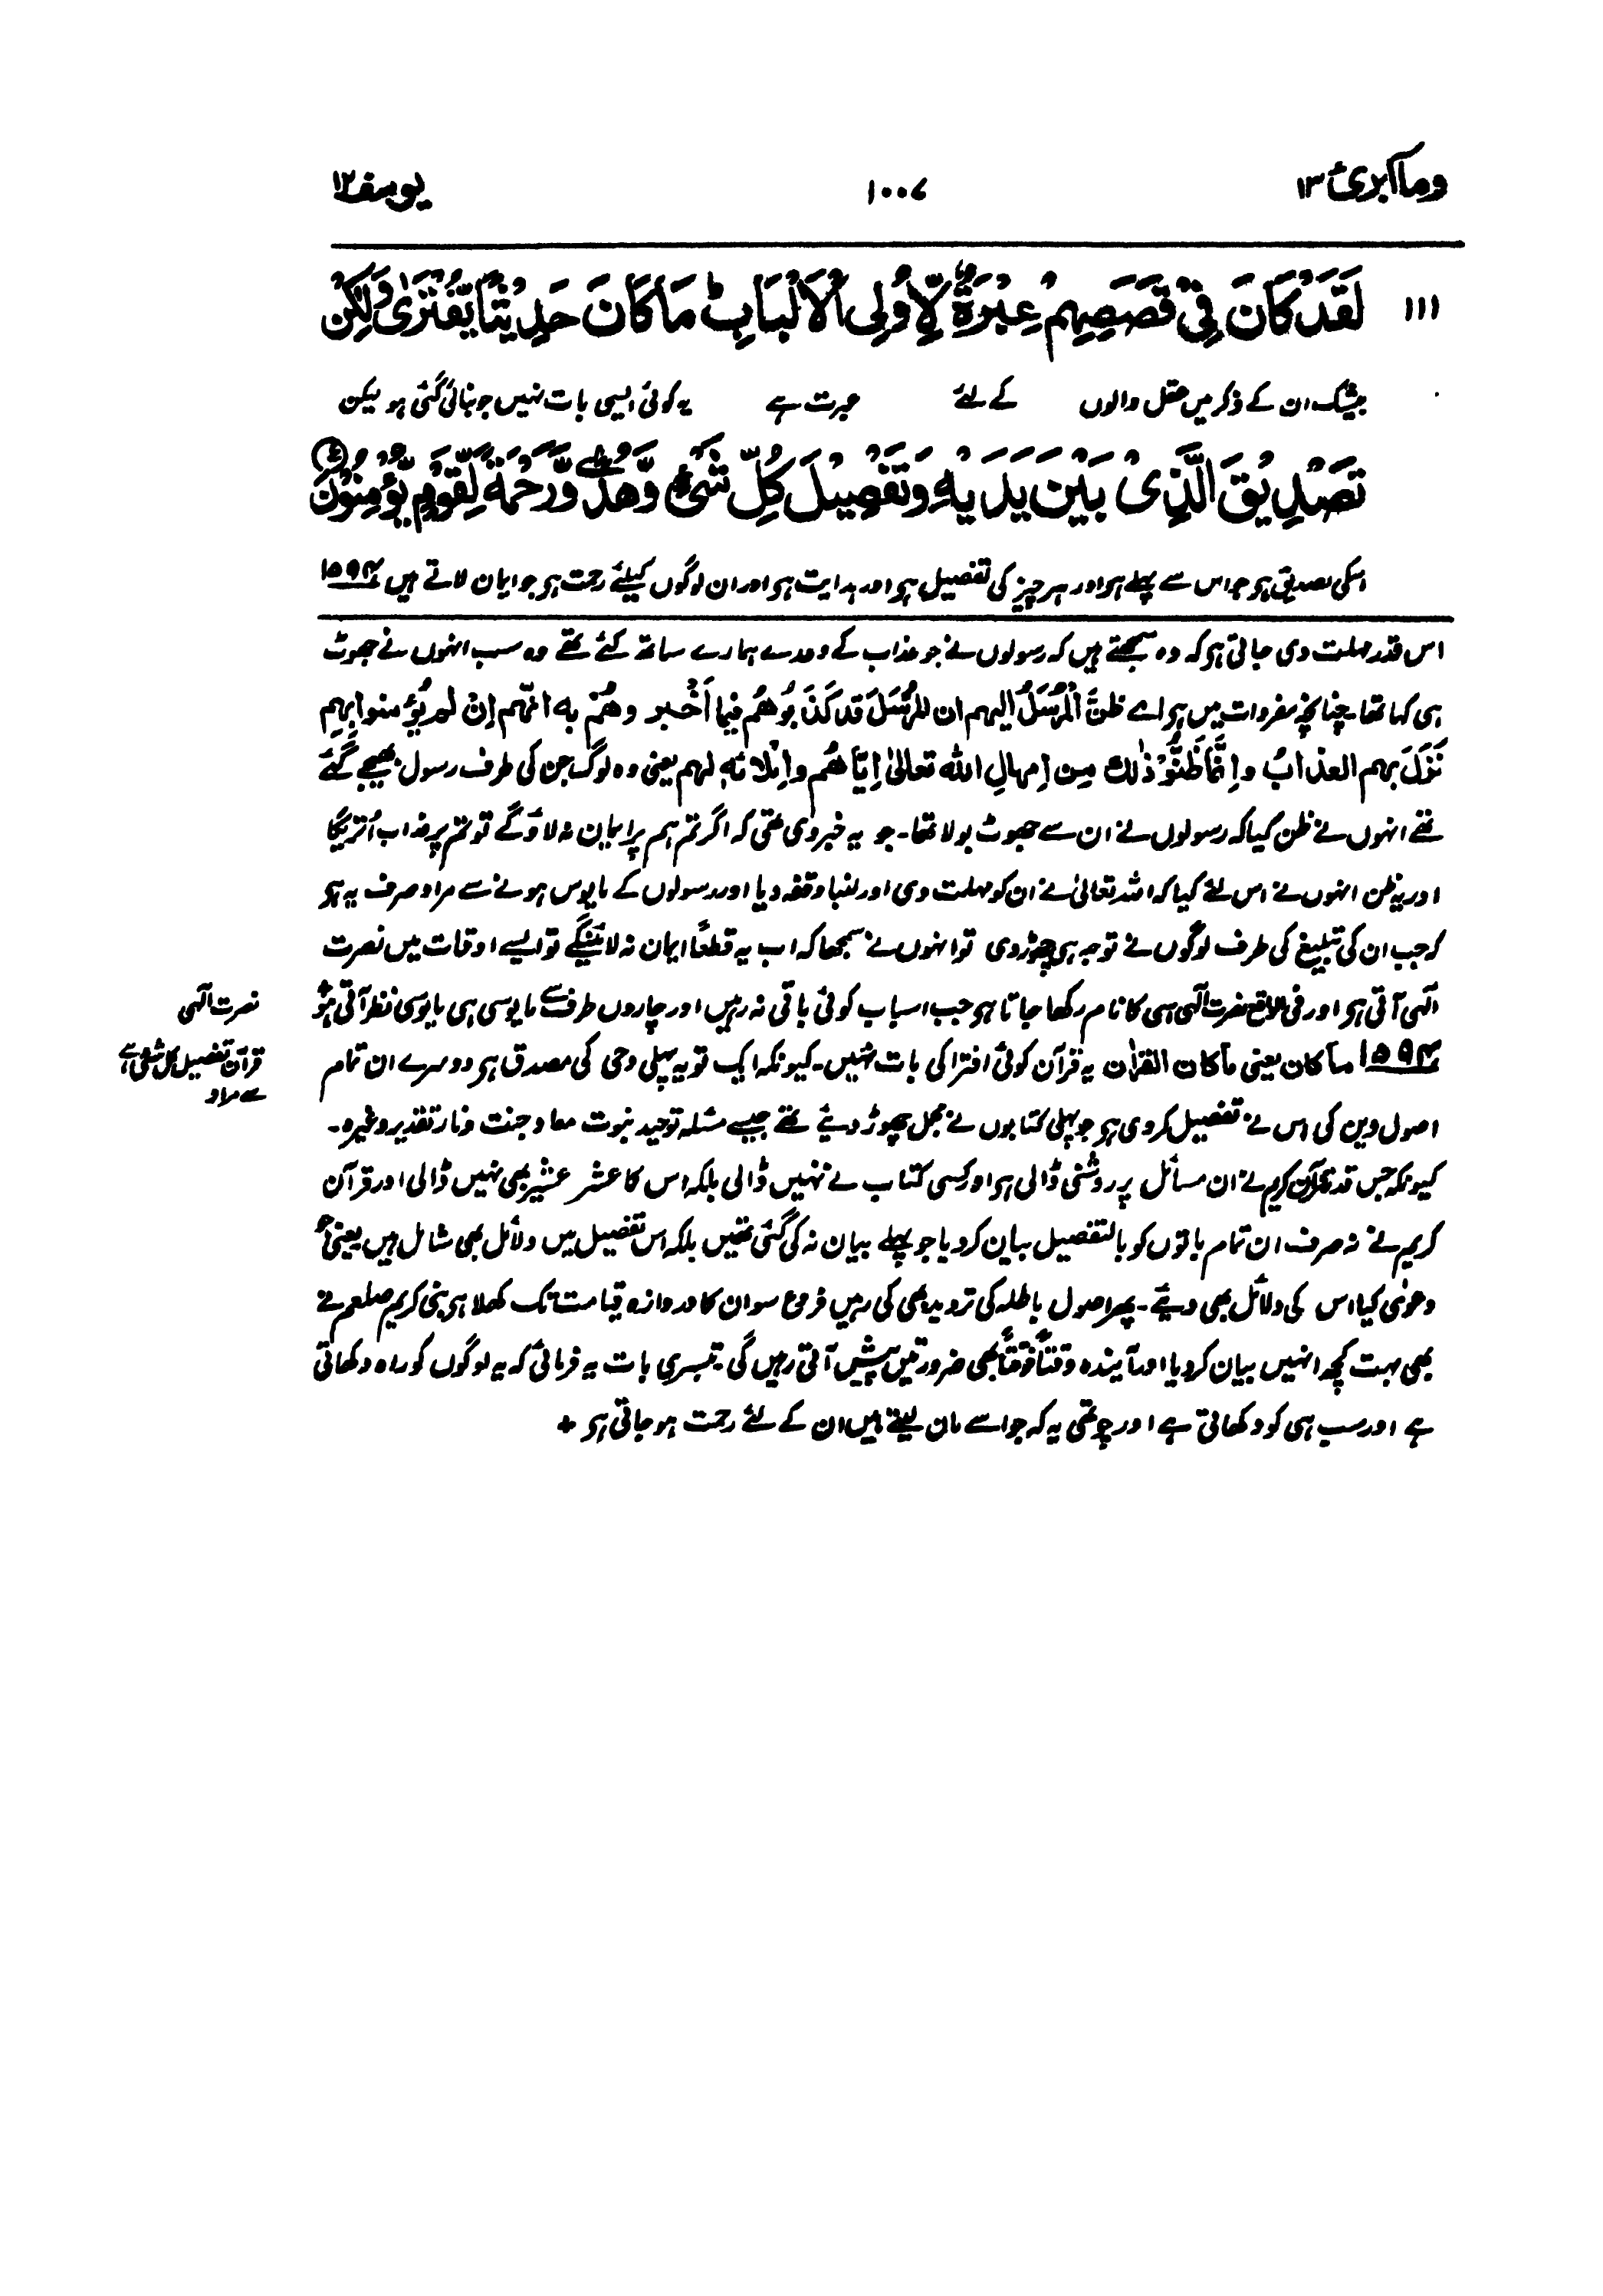 وماآبریٔ ۱۳
۱۰۰۷
یوسف ۱۲
۱۱۱
لَقَدْ كَانَ فِيْ قَصَصِهِمْ عِبْرَةٌ لِّاُولِى الْاَلْبَابِ ؕ مَا كَانَ حَدِيْثًا يُّفْتَرٰى وَلٰكِنْ
بیشک ان کے ذکر میں عقل والوں کے لئے عبرت ہے یہ کوئی ایسی بات نہیں جو بنائی گئی ہو لیکن
تَصْدِيْقَ الَّذِىْ بَيْنَ يَدَيْهِ وَتَفْصِيْلَ كُلِّ شَىْءٍ وَّهُدًى وَّرَحْمَةً لِّقَوْمٍ يُّؤْمِنُوْنَ
اسکی تصدیق ہو جو اس سے پہلے ہو اور ہر چیز کی تفصیل ہو اور ہدایت ہو اور ان لوگوں کیلئے رحمت ہو جو ایمان لاتے ہیں ۱۵۹۴
اس قدر مہلت دی جاتی ہو کہ وہ سمجھتے ہیں کہ رسولوں نے جو عذاب کے وعدے ہمارے ساتھ کئے تھے وہ سب انہوں نے جھوٹ
ہی کہا تھا۔ چنانچہ مفردات میں ہو اے ظَنَّ الْمُرْسَلُ الیہم ان الرُّسُلَ قد کَذَبُوهُم فیما اَخْبَرُوهُم به انہم اِنْ لم یُؤمنوا بِہم
نَزَلَ بہم العذابُ واِنَّمَا ظَنُّوْ ذٰلك مِن اِمهالِ الله تعالیٰ اِیَّاهُم واِمْلَائِهٖ لہم یعنی وہ لوگ جن کی طرف رسول بھیجے گئے
تھے انہوں نے ظن کیا کہ رسولوں نے ان سے جھوٹ بولا تھا۔ جو یہ خبر دی تھی کہ اگر تم ہم پر ایمان نہ لاؤ گے تو تم پر عذاب اُتریگا
اور یہ ظن انہوں نے اس لئے کیا کہ اللہ تعالیٰ نے ان کو مہلت دی اور لنبا وقفہ دیا اور رسولوں کے مایوس ہونے سے مراد صرف یہ ہو
کہ جب ان کی تبلیغ کی طرف لوگوں نے توجہ ہی چھوڑ دی تو انہوں نے سمجھا کہ اب یہ قطعاً ایمان نہ لائینگے تو ایسے اوقات میں نصرت
الٰہی آتی ہو اور فی الواقع نصرت الٰہی اسی کا نام رکھا جاتا ہو جب اسباب کوئی باقی نہ رہیں اور چاروں طرف سے مایوسی ہی مایوسی نظر آتی ہو
نصرت الٰہی
۱۵۹۴ ما کان یعنی ما کان القرآن یہ قرآن کوئی افترا کی بات نہیں۔ کیونکہ ایک تو یہ پہلی وحی کی مصدق ہو دوسرے ان تمام
قرآن تفصیل کل شی ہے
سے مراد
اصول دین کی اس نے تفصیل کر دی ہو جو پہلی کتابوں نے مجمل چھوڑ دیئے تھے جیسے مسئلہ توحید نبوت معاد جنت و نار تقدیر وغیرہ۔
کیونکہ جس قدر قرآن کریم نے ان مسائل پر روشنی ڈالی ہو اور کسی کتاب نے نہیں ڈالی بلکہ اس کا عشر عشیر بھی نہیں ڈالی اور قرآن
کریم نے نہ صرف ان تمام باتوں کو بالتفصیل بیان کر دیا جو پہلے بیان نہ کی گئی تھیں بلکہ اس تفصیل میں دلائل بھی شامل ہیں یعنی جو
دعویٰ کیا اس کی دلائل بھی دیئے۔ پھر اصول باطلہ کی تردید بھی کی رہیں فروع سو ان کا دروازہ قیامت تک کھلا ہو نبی کریم صلعم نے
بھی بہت کچھ انہیں بیان کر دیا اور آیندہ وقتاً فوقتاً بھی ضرورتیں پیش آتی رہیں گی۔ تیسری بات یہ فرمائی کہ یہ لوگوں کو راہ دکھاتی
ہے اور سب ہی کو دکھاتی ہے اور چوتھی یہ کہ جو اسے مان لیتے ہیں ان کے لئے رحمت ہو جاتی ہو +